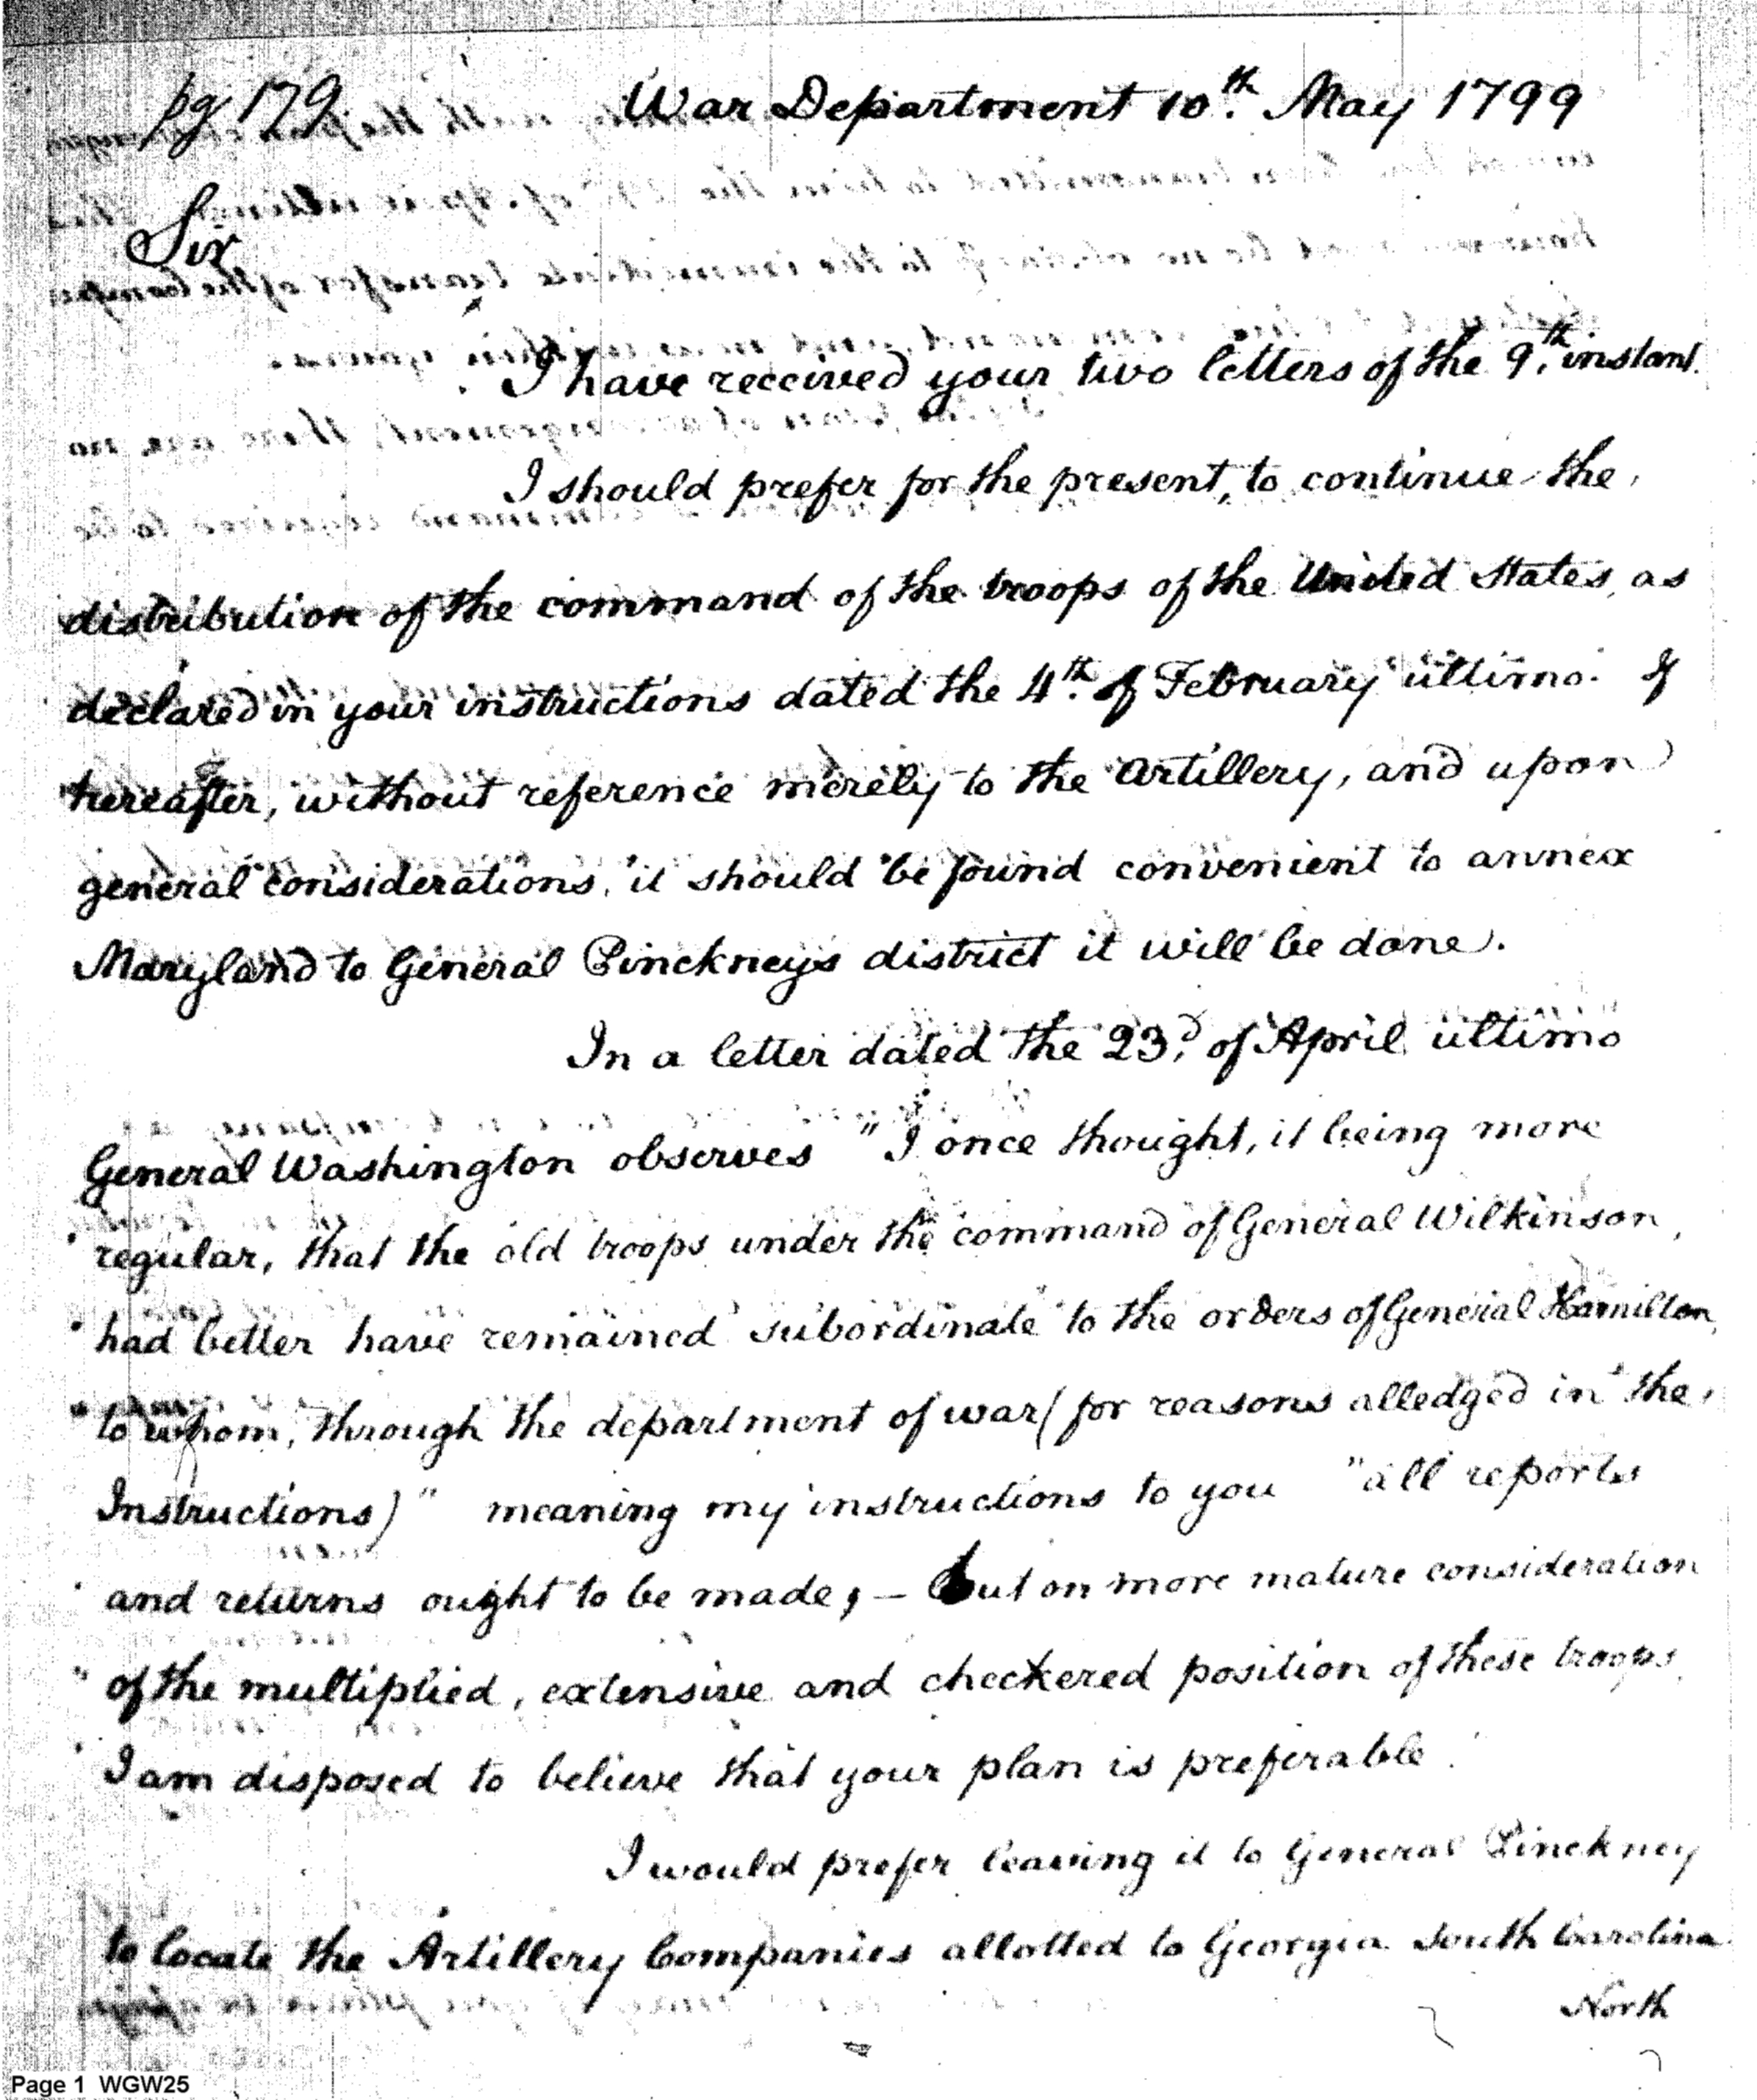 pg 179
War Department 10th. May 1799
Sir
I have received your two letters of the 9th. instant.
I should prefer for the present, to continue the
distribution of the command of the troops of the United States, as
declared in your instructions dated the 4th. of February ultimo. If
hereafter, without reference merely to the Artillery, and upon
general considerations, it should be found convenient to annex
Maryland to General Pinckneys district it will be done.
In a letter dated the 23d. of April ultimo
General Washington observes "I once thought, it being more
" regular, that the old troops under the command of General Wilkinson,
" had better have remained subordinate to the orders of General Hamilton,
" to whom, through the department of war (for reasons alledged in the
Instructions)" meaning my instructions to you "all reports
" and returns ought to be made; – but on more mature consideration
" of the multiplied, extensive and checkered position of these troops,
" I am disposed to believe that your plan is preferable.
I would prefer leaving it to General Pinckney
to locate the Artillery Companies allotted to Georgia South Carolina
North
Page 1 WGW25